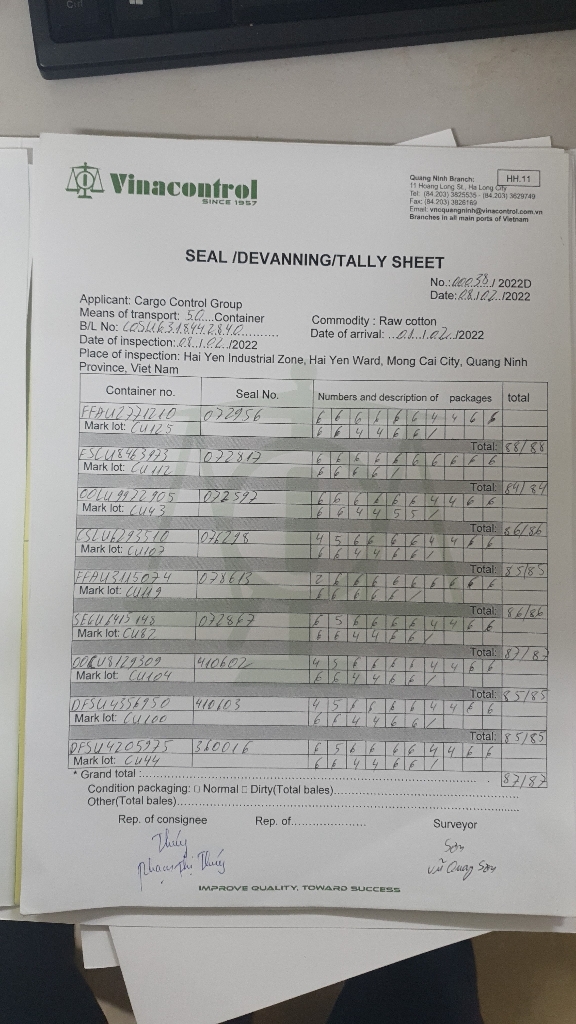 Ctrl
Vinacontrol
SINCE 1957
HH.11
Quang Ninh Branch:
11 Hoang Long St., Ha Long City
Tel: (84.203) 3825536 - (84.203) 3629749
Fax: (84.203) 3826169
Email: vncquangninh@vinacontrol.com.vn
Branches in all main ports of Vietnam
SEAL /DEVANNING/TALLY SHEET
No.: 00038 / 2022D
Date: 08/02 /2022
Applicant: Cargo Control Group
Means of transport: 50 Container
Commodity : Raw cotton
B/L No: COSU6318442840
Date of arrival: 01/02 /2022
Date of inspection: 08/02 /2022
Place of inspection: Hai Yen Industrial Zone, Hai Yen Ward, Mong Cai City, Quang Ninh
Province, Viet Nam
Container no. Seal No. Numbers and description of packages total
FFAU2771210 072956 6 6 6 6 6 6 4 4 6 6
Mark lot: CU125 6 6 4 4 6 6 /
Total: 88/88
FSCU8463973 072817 6 6 6 6 6 6 6 6 6 6
Mark lot: CU112 6 6 6 6 /
Total: 84/84
OOLU9922905 072592 6 6 6 6 6 6 4 4 6 6
Mark lot: CU43 6 6 4 4 5 5 /
Total: 86/86
CSLU6293510 076298 4 5 6 6 6 6 4 4 6 6
Mark lot: CU107 6 6 4 4 6 6 /
Total: 85/85
FFAU3115074 078613 2 6 6 6 6 6 6 6 6 6
Mark lot: CU119 6 6 6 6 6 /
Total: 86/86
SEGU6415148 072867 6 5 6 6 6 6 4 4 6 6
Mark lot: CU82 6 6 4 4 6 6 /
Total: 87/87
OOCU8129309 410602 4 5 6 6 6 6 4 4 6 6
Mark lot: CU104 6 6 4 4 6 6 /
Total: 85/85
DFSU4356950 410603 4 5 6 6 6 6 4 4 6 6
Mark lot: CU100 6 6 4 4 6 6 /
Total: 85/85
DFSU4205975 360016 6 5 6 6 6 6 4 4 6 6
Mark lot: CU44 6 6 4 4 6 6 /
* Grand total : 87/87
Condition packaging: □ Normal □ Dirty(Total bales)
Other(Total bales)
Rep. of consignee Rep. of Surveyor
Thúy Sơn
Phạm Thị Thúy Vũ Quang Sơn
IMPROVE QUALITY, TOWARD SUCCESS